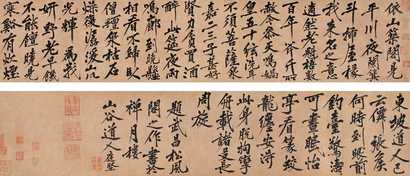 依山築閣見
平川夜闌箕
斗插屋椽
我來名之意
適然老松魁梧數
百年斧斤所
赦今參天風鳴媧
皇五十弦洗耳
不須菩薩泉
嘉二三子甚好
賢力貧買酒
醉此筵夜雨
鳴廊到曉懸
相看不歸臥
僧氈泉枯石
燥復潺湲山川
光輝為我
妍野老早飢
不能饘曉見
寒谿有炊煙
東坡道人已
張侯
何時到眼前
釣臺驚濤
可晝眠怡
亭看篆蛟
龍纏安得
此身脫拘攣
載諸友長
周旋
題武昌松風
閣之作書於
禪月樓
山谷道人庭堅